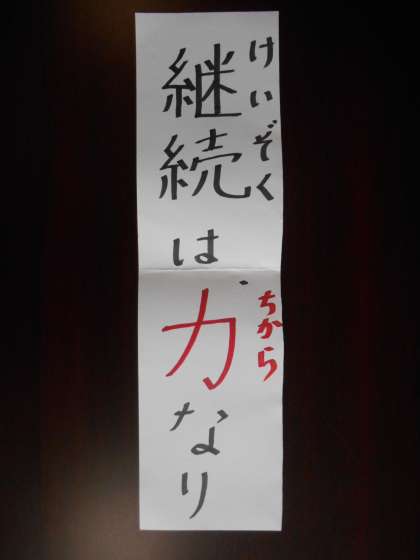 けいぞく
継続は
ちから
力なり